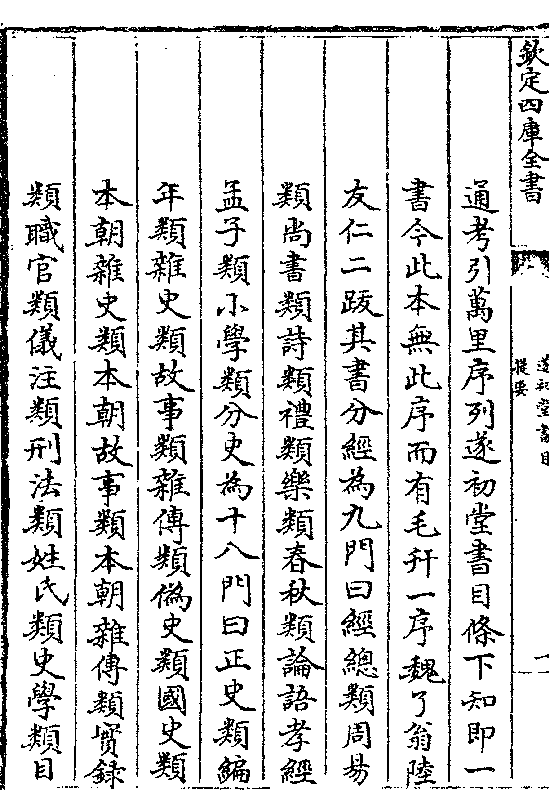 欽定四庫全書
遂初堂書目
提要
一
通考引萬里序列遂初堂書目條下知即一
書今此本無此序而有毛幵一序魏了翁陸
友仁二跋其書分經為九門曰經總類周易
類尚書類詩類禮類樂類春秋類論語孝經
孟子類小學類分史為十八門曰正史類編
年類雜史類故事類雜傳類偽史類國史類
本朝雜史類本朝故事類本朝雜傳類實錄
類職官類儀注類刑法類姓氏類史學類目